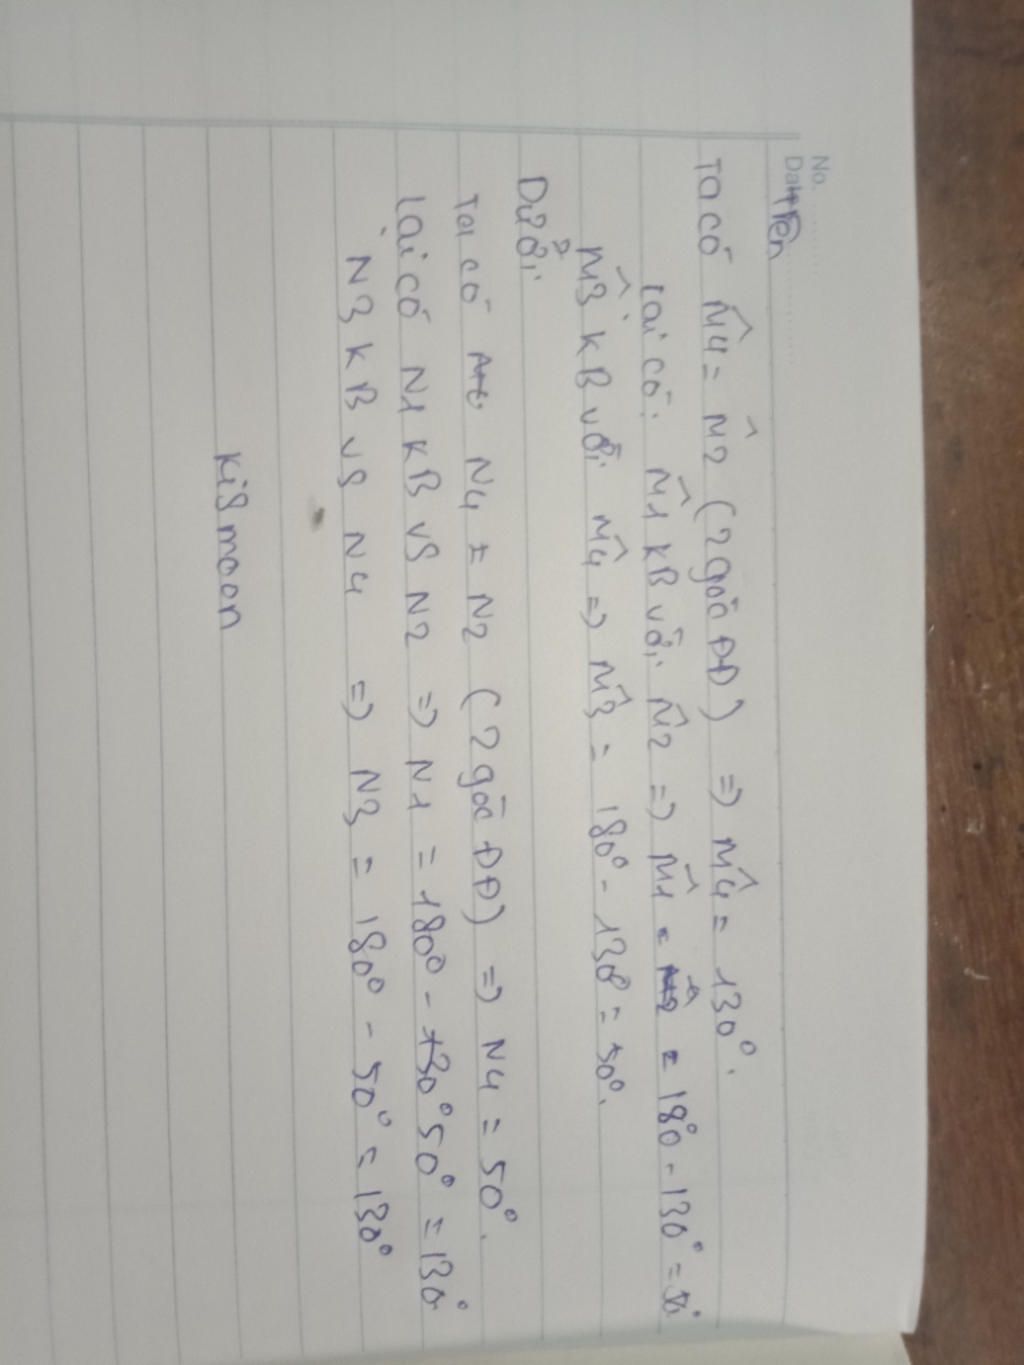 No.
Date
trên
Ta có M̂4 = M̂2 (2 góc ĐĐ) => M̂4 = 130°.
lại có: M̂1 KB với M̂2 => M̂1 = = 180 - 130° =
M̂3 KB với M̂4 => M̂3 = 180° - 130° = 50°.
Dưới
Ta có N4 = N2 (2 góc ĐĐ) => N4 = 50°.
lại có N1 KB vs N2 => N1 = 180° - 50° = 130°
N3 KB vs N4 => N3 = 180° - 50° = 130°
Kismoon